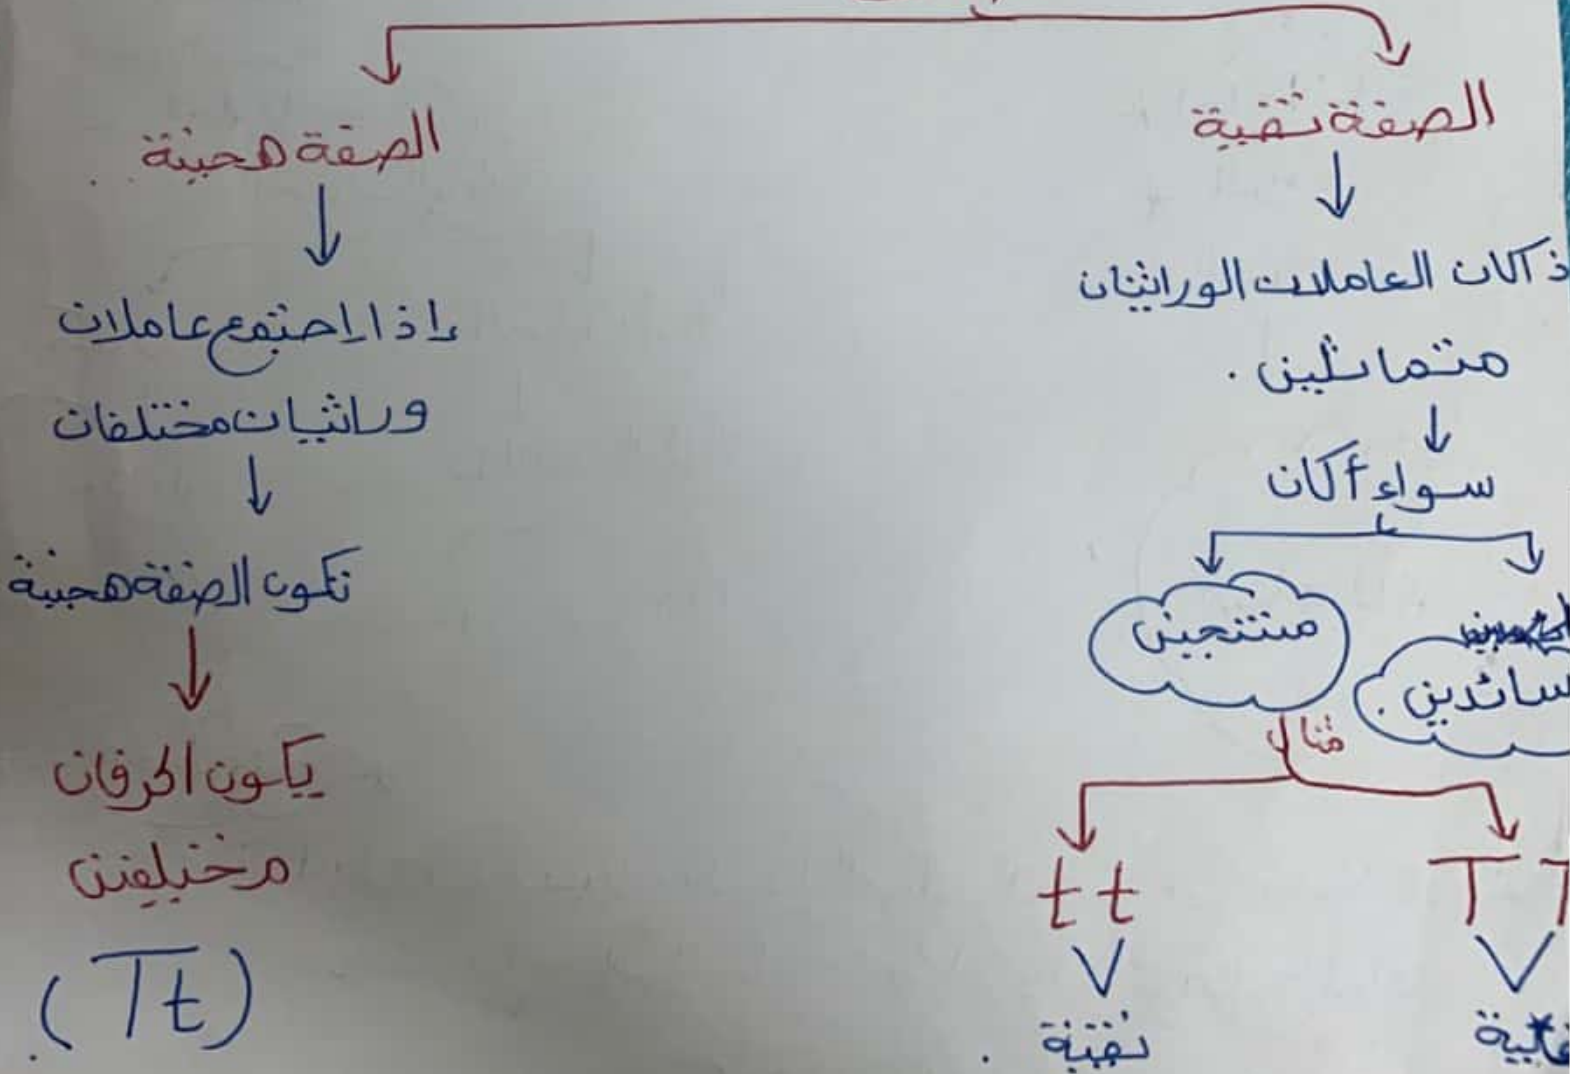 الصفة نقية
ذا كان العاملان الوراثيان
متماثلين .
سواء أكان
سائدين .
منتنجين
مثال
T T
t t
نقية .
الصفة هجينة
إذا إجتمع عاملان
وراثيان مختلفان
تكون الصفة هجينة
يكون الحرفان
مختلفين
(Tt) .